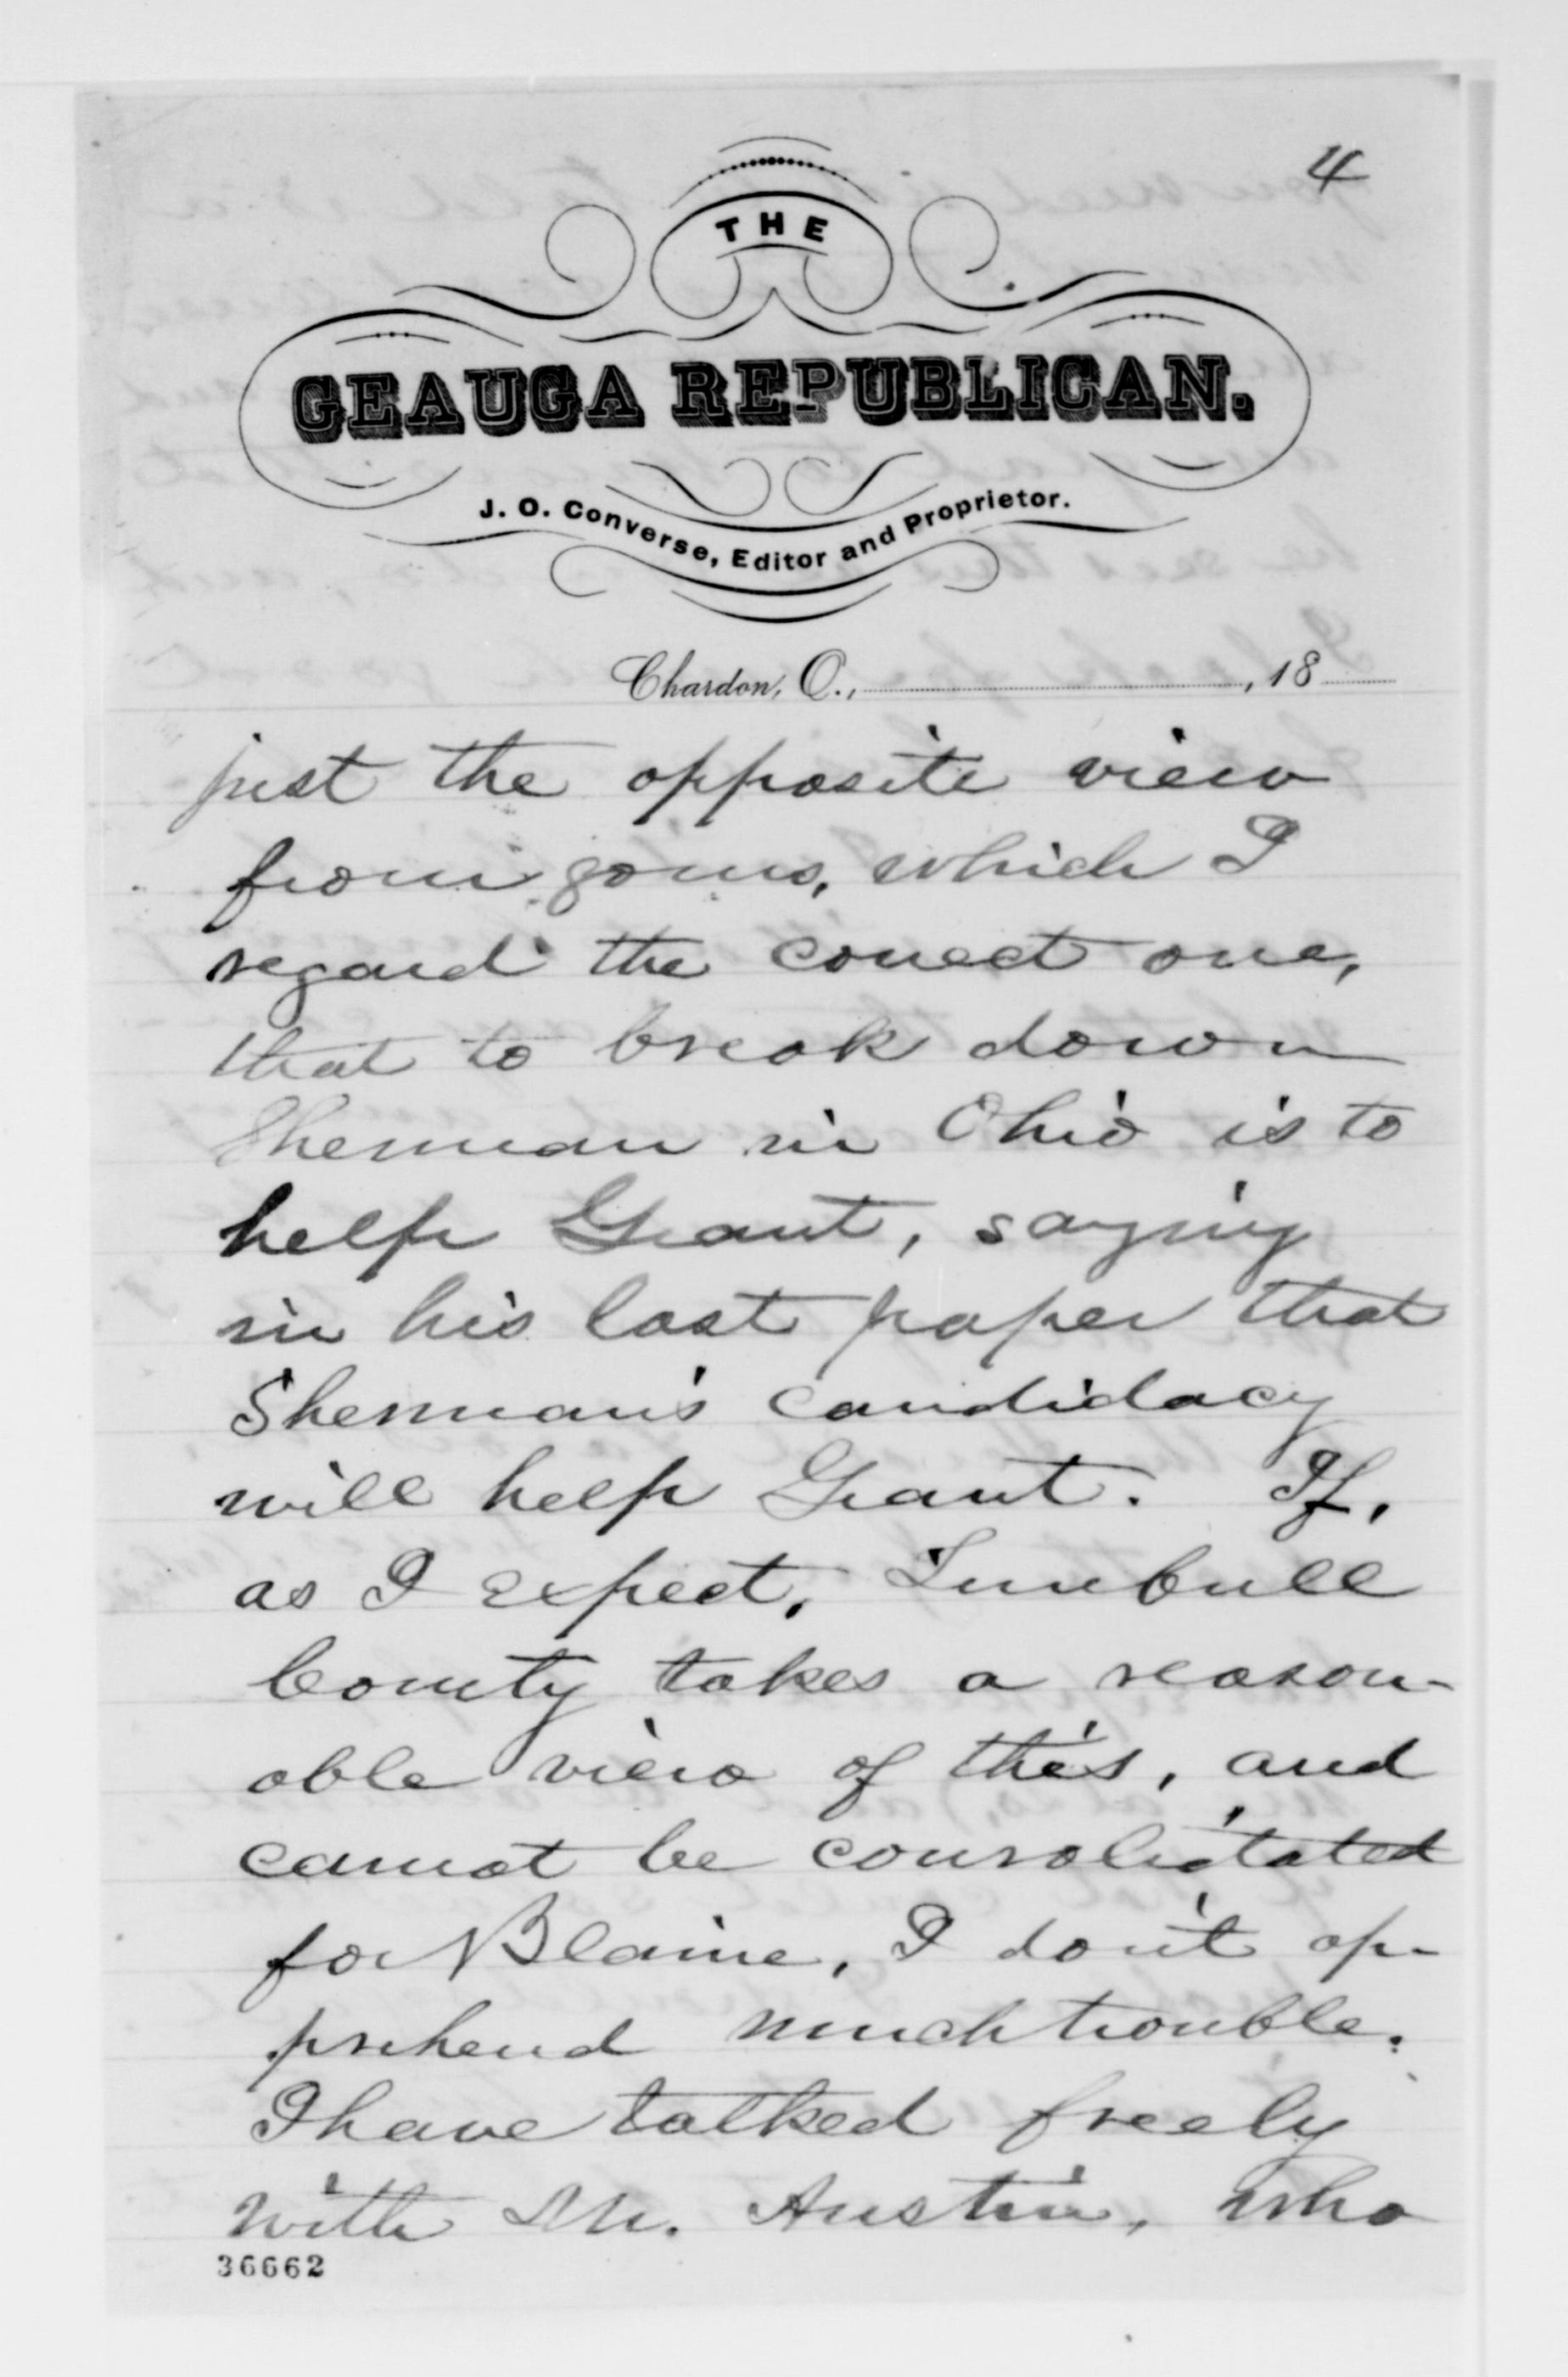 4
THE
GEAUGA REPUBLICAN.
J. O. Converse, Editor and Proprietor.
Chardon, O., , 18
just the opposite view
from yours, which I
regard the correct one,
that to break down
Sherman in Ohio is to
help Grant, saying
in his last paper that
Sherman's candidacy
will help Grant. If,
as I expect, Trumbull
County takes a reason-
able view of this, and
cannot be consolidated
for Blaine, I don't ap-
prehend much trouble.
I have talked freely
with Mr. Austin, who
36662